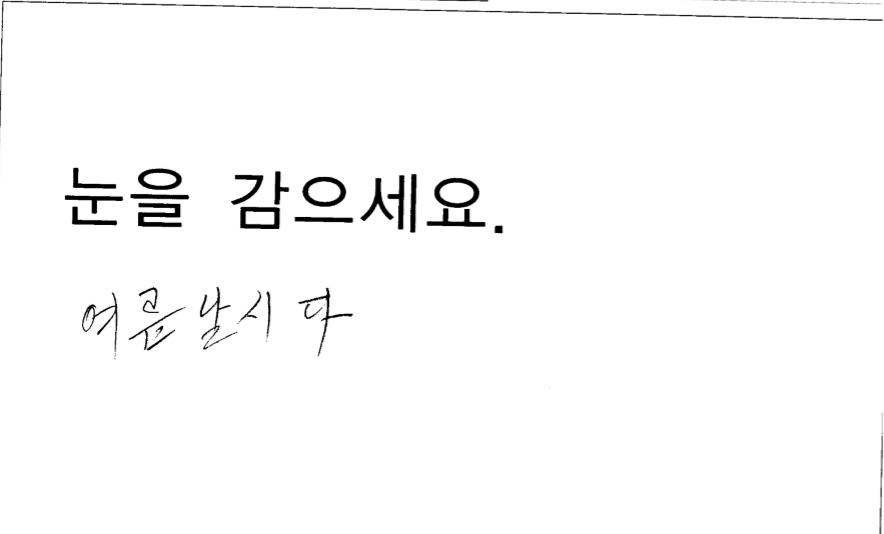 눈을 감으세요.
여름날시다